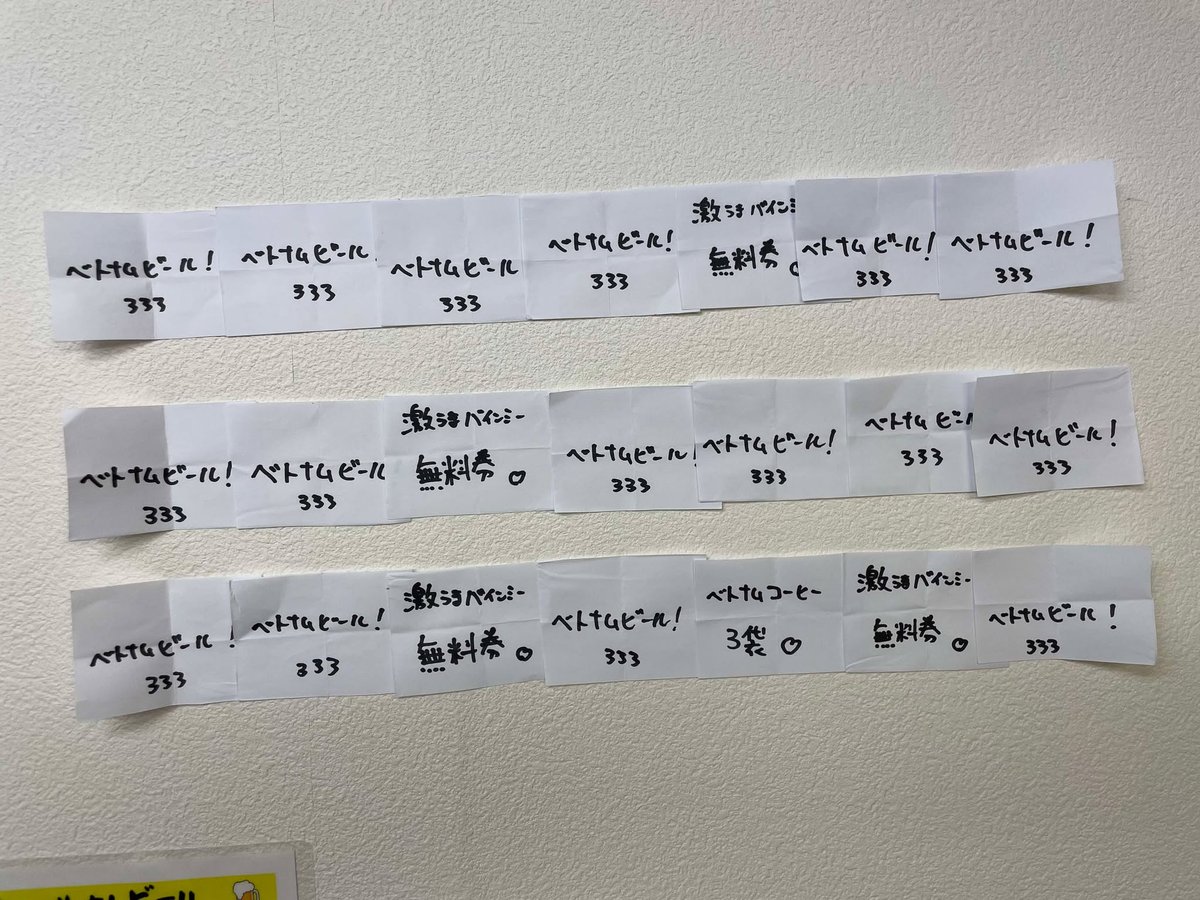 ベトナムビール!
333
ベトナムビール!
333
ベトナムビール
333
ベトナムビール!
333
激うまバインミ
無料券。
ベトナムビール!
333
ベトナムビール!
333
ベトナムビール!
333
ベトナムビール
333
激うまバインミー
無料券。
ベトナムビール!
333
ベトナムビール!
333
ベトナムビール
333
ベトナムビール!
333
ベトナムビール!
333
ベトナムビール!
333
激うまバインミー
無料券。
ベトナムビール!
333
ベトナムコーヒー
3袋。
激うまバインミー
無料券。
ベトナムビール!
333